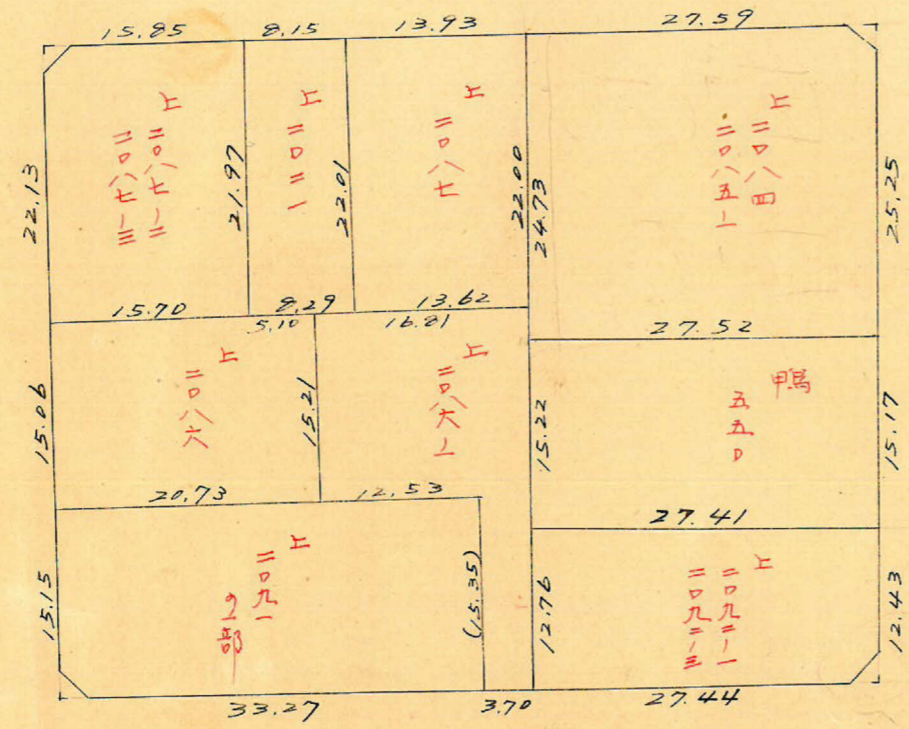 15.85
8.15
13.93
27.59
22.13
上
二〇八七ノ二
二〇八七ノ三
21.97
上
二〇二一
22.01
上
二〇八七
22.00
24.73
上
二〇八四
二〇八五ノ一
25.25
15.70
8.29
13.62
5.10
16.81
27.52
15.06
上
二〇八六
15.21
上
二〇八六ノ一
15.22
鴨
五五〇
15.17
20.73
12.53
27.41
15.15
上
二〇九一
の一部
(15.35)
12.76
上
二〇九二ノ一
二〇九二ノ三
12.43
33.27
3.70
27.44